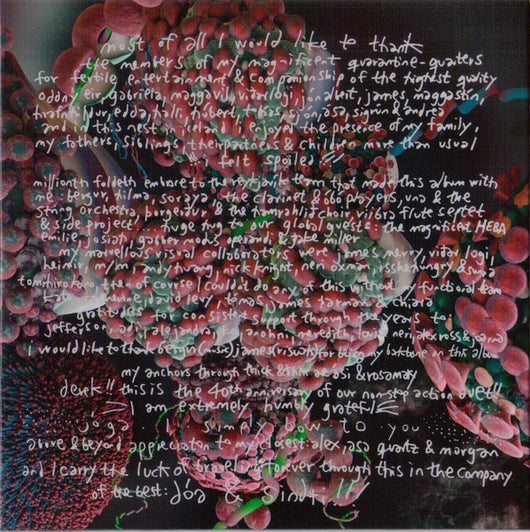 most of all I would like to thank
the members of my magnificent quarantine-quaters
for fertile entertainment & companionship of the highest quality
oddný eir, gabríela, maggavil, vidar logi, james, maggastín,
hrafnhildur, edda, halli, ása, sigrún & andrea
and in this nest iceland i enjoyed the presence of my family,
my fathers, siblings, their partners & children more than usual
felt spoiled
millionth foldeth embrace to the reykjavík team that made this album with
me: bergur, hilma, soraya, the clarinet & oboe players, una & the
string orchestra, þorgerður & the hamrahlíð choir, viibra flute septet
& side project, huge hug to our global guests: the magnificent
emilie, josiah, gabber modus operandi, & jake miller
my marvellous visual collaborators were james merry, vidar logi,
heimir, m/m, andy huang, nick knight, iris &
tomihiro kono, then of course I couldnt do any of this without my functional team
david levy, james & chiara
gratitudes for consistent support through the years to
alejandra, anohni, meredith, alex ross &
I would like to thank james (visuals) for being my backbone on this album
my anchors through thick & thin: & rosamary
derek!! this is the 40th anniversary of our non-stop action duet!!
I am extremely humbly grateful
jóga simply bow to you
above & beyond appreciation to my closest: alex, ása quartz & morgan
and I carry the luck of traveling forever through this in the company
of the best: dóa & sindri!!